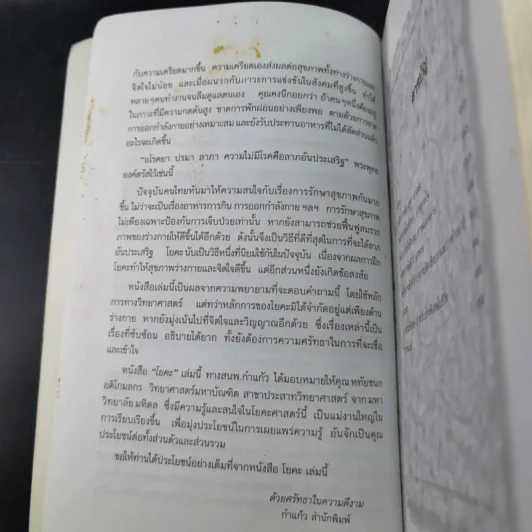 กับความเครียดมากขึ้น ความเครียดเองส่งผลต่อสุขภาพทั้งทางร่างกายและ
จิตใจไม่น้อย และเมื่อผนวกกับภาวะการแข่งขันในสังคมที่สูงขึ้น ทำให้
หลายๆคนทำงานจนลืมดูแลตนเอง คุณคงนึกออกว่า ถ้าคนๆหนึ่งต้องอยู่
ในภาวะที่มีความกดดันสูง ขาดการพักผ่อนอย่างเพียงพอ ตามด้วยการขาด
การออกกำลังกายอย่างเหมาะสม และยังรับประทานอาหารที่ไม่ได้สัดส่วนแล้ว
อะไรจะเกิดขึ้น
"อโรคยา ปรมา ลาภา ความไม่มีโรคคือลาภอันประเสริฐ" พระพุทธ
องค์ตรัสไว้เช่นนี้
ปัจจุบันคนไทยหันมาให้ความสนใจกับเรื่องการรักษาสุขภาพกันมาก
ขึ้น ไม่ว่าจะเป็นเรื่องอาหารการกิน การออกกำลังกาย ฯลฯ การรักษาสุขภาพ
ไม่เพียงเฉพาะป้องกันการเจ็บป่วยเท่านั้น หากยังสามารถช่วยฟื้นฟูสมรรถ
ภาพของร่างกายให้ดีขึ้นได้อีกด้วย ดังนั้นจึงเป็นวิธีที่ดีที่สุดในการที่จะได้ลาภ
อันประเสริฐ โยคะ นับเป็นวิธีหนึ่งที่นิยมใช้กันในปัจจุบัน เนื่องจากผลการฝึก
โยคะทำให้สุขภาพร่างกายและจิตใจดีขึ้น แต่อีกส่วนหนึ่งยังเกิดข้อสงสัย
หนังสือเล่มนี้เป็นผลจากความพยายามที่จะตอบคำถามนี้ โดยใช้หลัก
การทางวิทยาศาสตร์ แต่ทว่าหลักการของโยคะมิได้จำกัดอยู่แต่เพียงด้าน
ร่างกาย หากยังมุ่งเน้นไปที่จิตใจและวิญญาณอีกด้วย ซึ่งเรื่องเหล่านี้เป็น
เรื่องที่ซับซ้อน อธิบายได้ยาก ทั้งยังต้องการความศรัทธาในการที่จะเชื่อ
และเข้าใจ
หนังสือ "โยคะ" เล่มนี้ ทางสนพ.กำแก้ว ได้มอบหมายให้คุณ หทัยชนก
อดิโกมลกร วิทยาศาสตร์มหาบัณฑิต สาขาประสาทวิทยาศาสตร์ จาก มหา
วิทยาลัย มหิดล ซึ่งมีความรู้และสนใจในโยคะศาสตร์นี้ เป็นแม่งานใหญ่ใน
การเรียบเรียงขึ้น เพื่อมุ่งประโยชน์ในการเผยแพร่ความรู้ อันจักเป็นคุณ
ประโยชน์ต่อทั้งส่วนตัวและส่วนรวม
ขอให้ท่านได้ประโยชน์อย่างเต็มที่จากหนังสือ โยคะ เล่มนี้
ด้วยศรัทธาในความดีงาม
กำแก้ว สำนักพิมพ์